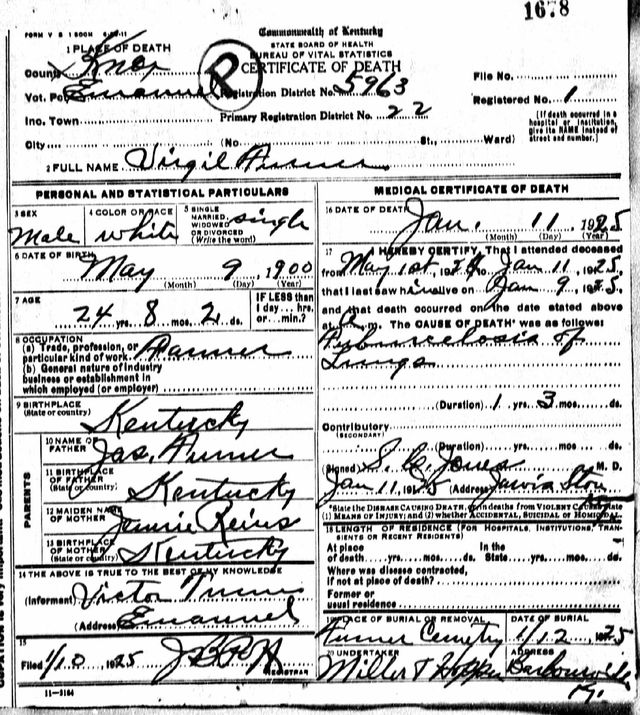 1678
FORM V S 1 500M
Commonwealth of Kentucky
STATE BOARD OF HEALTH
BUREAU OF VITAL STATISTICS
CERTIFICATE OF DEATH
1 PLACE OF DEATH
County Knox
Vot. Pct Emanuel
Inc. Town
City
R
Registration District No. 5963
Primary Registration District No. 22
(No. St., Ward)
File No.
Registered No. 1
[If death occurred in a hospital or institution, give its NAME instead of street and number.]
2 FULL NAME Virgil Turner
PERSONAL AND STATISTICAL PARTICULARS
3 SEX Male
4 COLOR OR RACE white
5 SINGLE MARRIED, WIDOWED OR DIVORCED (Write the word) single
6 DATE OF BIRTH May 9, 1900
(Month) (Day) (Year)
7 AGE 24 yrs. 8 mos. 2 ds.
IF LESS than 1 day... hrs. or... min.?
8 OCCUPATION
(a) Trade, profession, or particular kind of work Farmer
(b) General nature of industry business or establishment in which employed (or employer)
9 BIRTHPLACE (State or country) Kentucky
PARENTS
10 NAME OF FATHER Jas. Turner
11 BIRTHPLACE OF FATHER (State or country) Kentucky
12 MAIDEN NAME OF MOTHER
13 BIRTHPLACE OF MOTHER (State or country) Kentucky
14 THE ABOVE IS TRUE TO THE BEST OF MY KNOWLEDGE
(Informant) Victor Turner
(Address) Emanuel
15
Filed 1/10 1925
REGISTRAR
11-3184
MEDICAL CERTIFICATE OF DEATH
16 DATE OF DEATH Jan. 11 1925
(Month) (Day) (Year)
17 I HEREBY CERTIFY, That I attended deceased
from May 1st 1924 to Jan 11, 1925,
that I last saw him alive on Jan 9, 1925,
and that death occurred on the date stated above
at m. The CAUSE OF DEATH* was as follows:
Tuberculosis of
Lungs
(Duration) 1 yrs. 3 mos. ds.
Contributory
(SECONDARY)
(Duration) yrs. mos. ds.
(Signed) S. C. Jones M. D.
Jan 11, 1925 (Address) Jarvis Store
*State the DISEASE CAUSING DEATH, or in deaths from VIOLENT CAUSES state (1) MEANS OF INJURY; and (2) whether ACCIDENTAL, SUICIDAL OR HOMICIDAL
18 LENGTH OF RESIDENCE (FOR HOSPITALS, INSTITUTIONS, TRANSIENTS OR RECENT RESIDENTS)
At place of death yrs. mos. ds. In the State yrs. mos. ds.
Where was disease contracted, if not at place of death?
Former or usual residence
19 PLACE OF BURIAL OR REMOVAL Turner Cemetry
DATE OF BURIAL 1/12 1925
20 UNDERTAKER Miller T Hopper
ADDRESS Barbourville Ky.